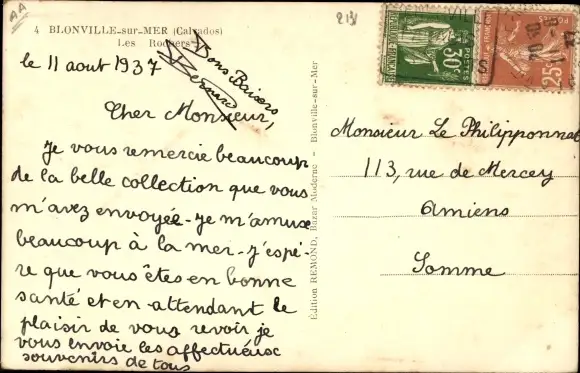 AA
4 BLONVILLE-sur-MER (Calvados)
Les Rochers
213
le 11 aout 1937
Bons Baisers
Bernard
Cher Monsieur,
Je vous remercie beaucoup
de la belle collection que vous
m'avez envoyée - Je m'amuse
beaucoup à la mer - J'espè-
re que vous êtes en bonne
santé et en attendant le
plaisir de vous revoir je
vous envoie les affectueuse
souvenirs de tous
Edition REMOND, Bazar Moderne - Blonville-sur-Mer
30c
POSTES
25c
Monsieur Le Philipponnat
113, rue de Mercey
Amiens
Somme